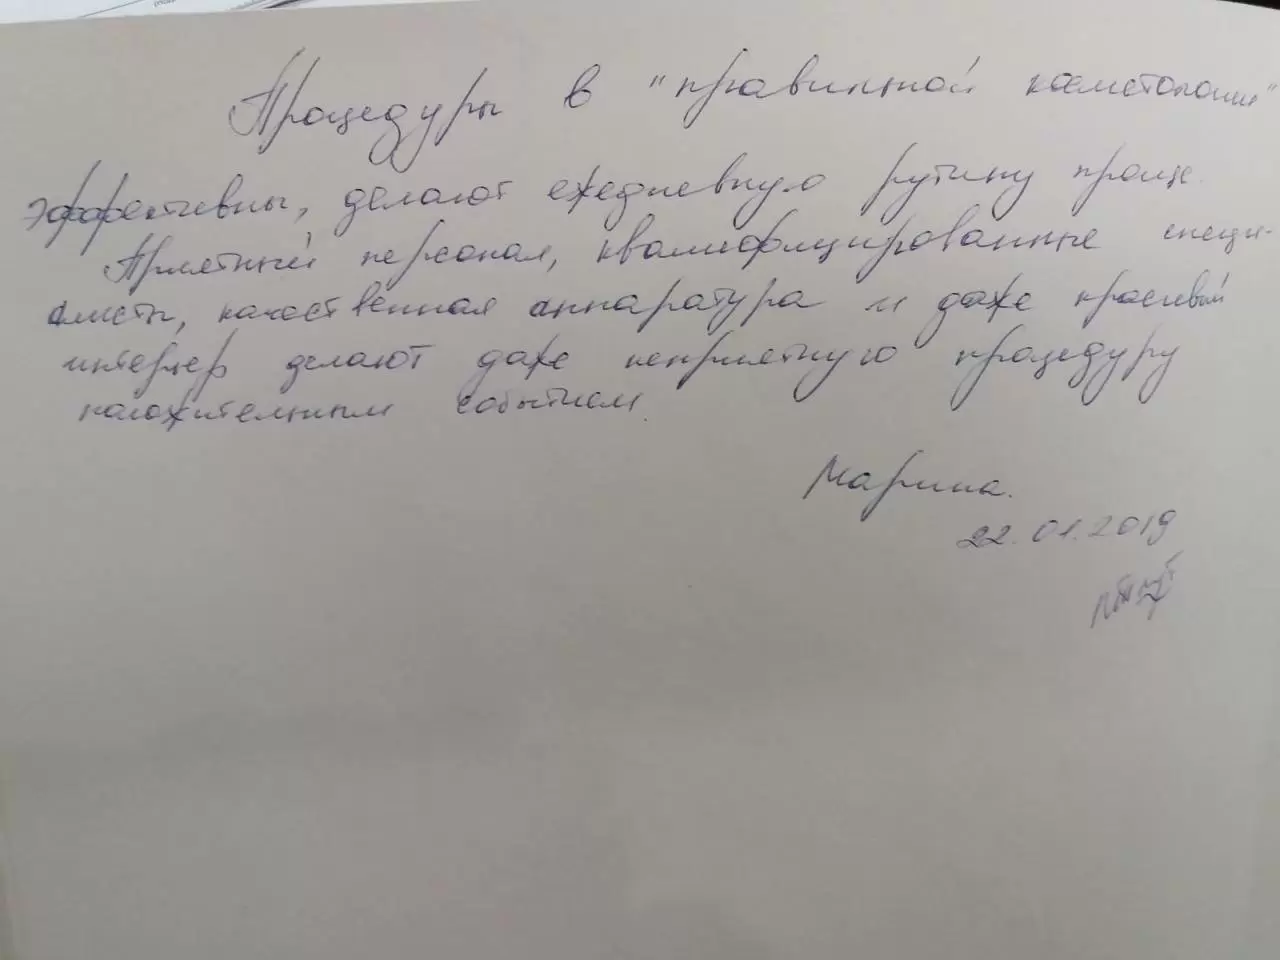 Процедуры в "правильной косметологии"
эффективны, делают ежедневную рутину проще.
Приятный персонал, квалифицированные специ-
алисты, качественная аппаратура и даже красивый
интерьер делают даже неприятную процедуру
положительным событием.
Марина.
22.01.2019